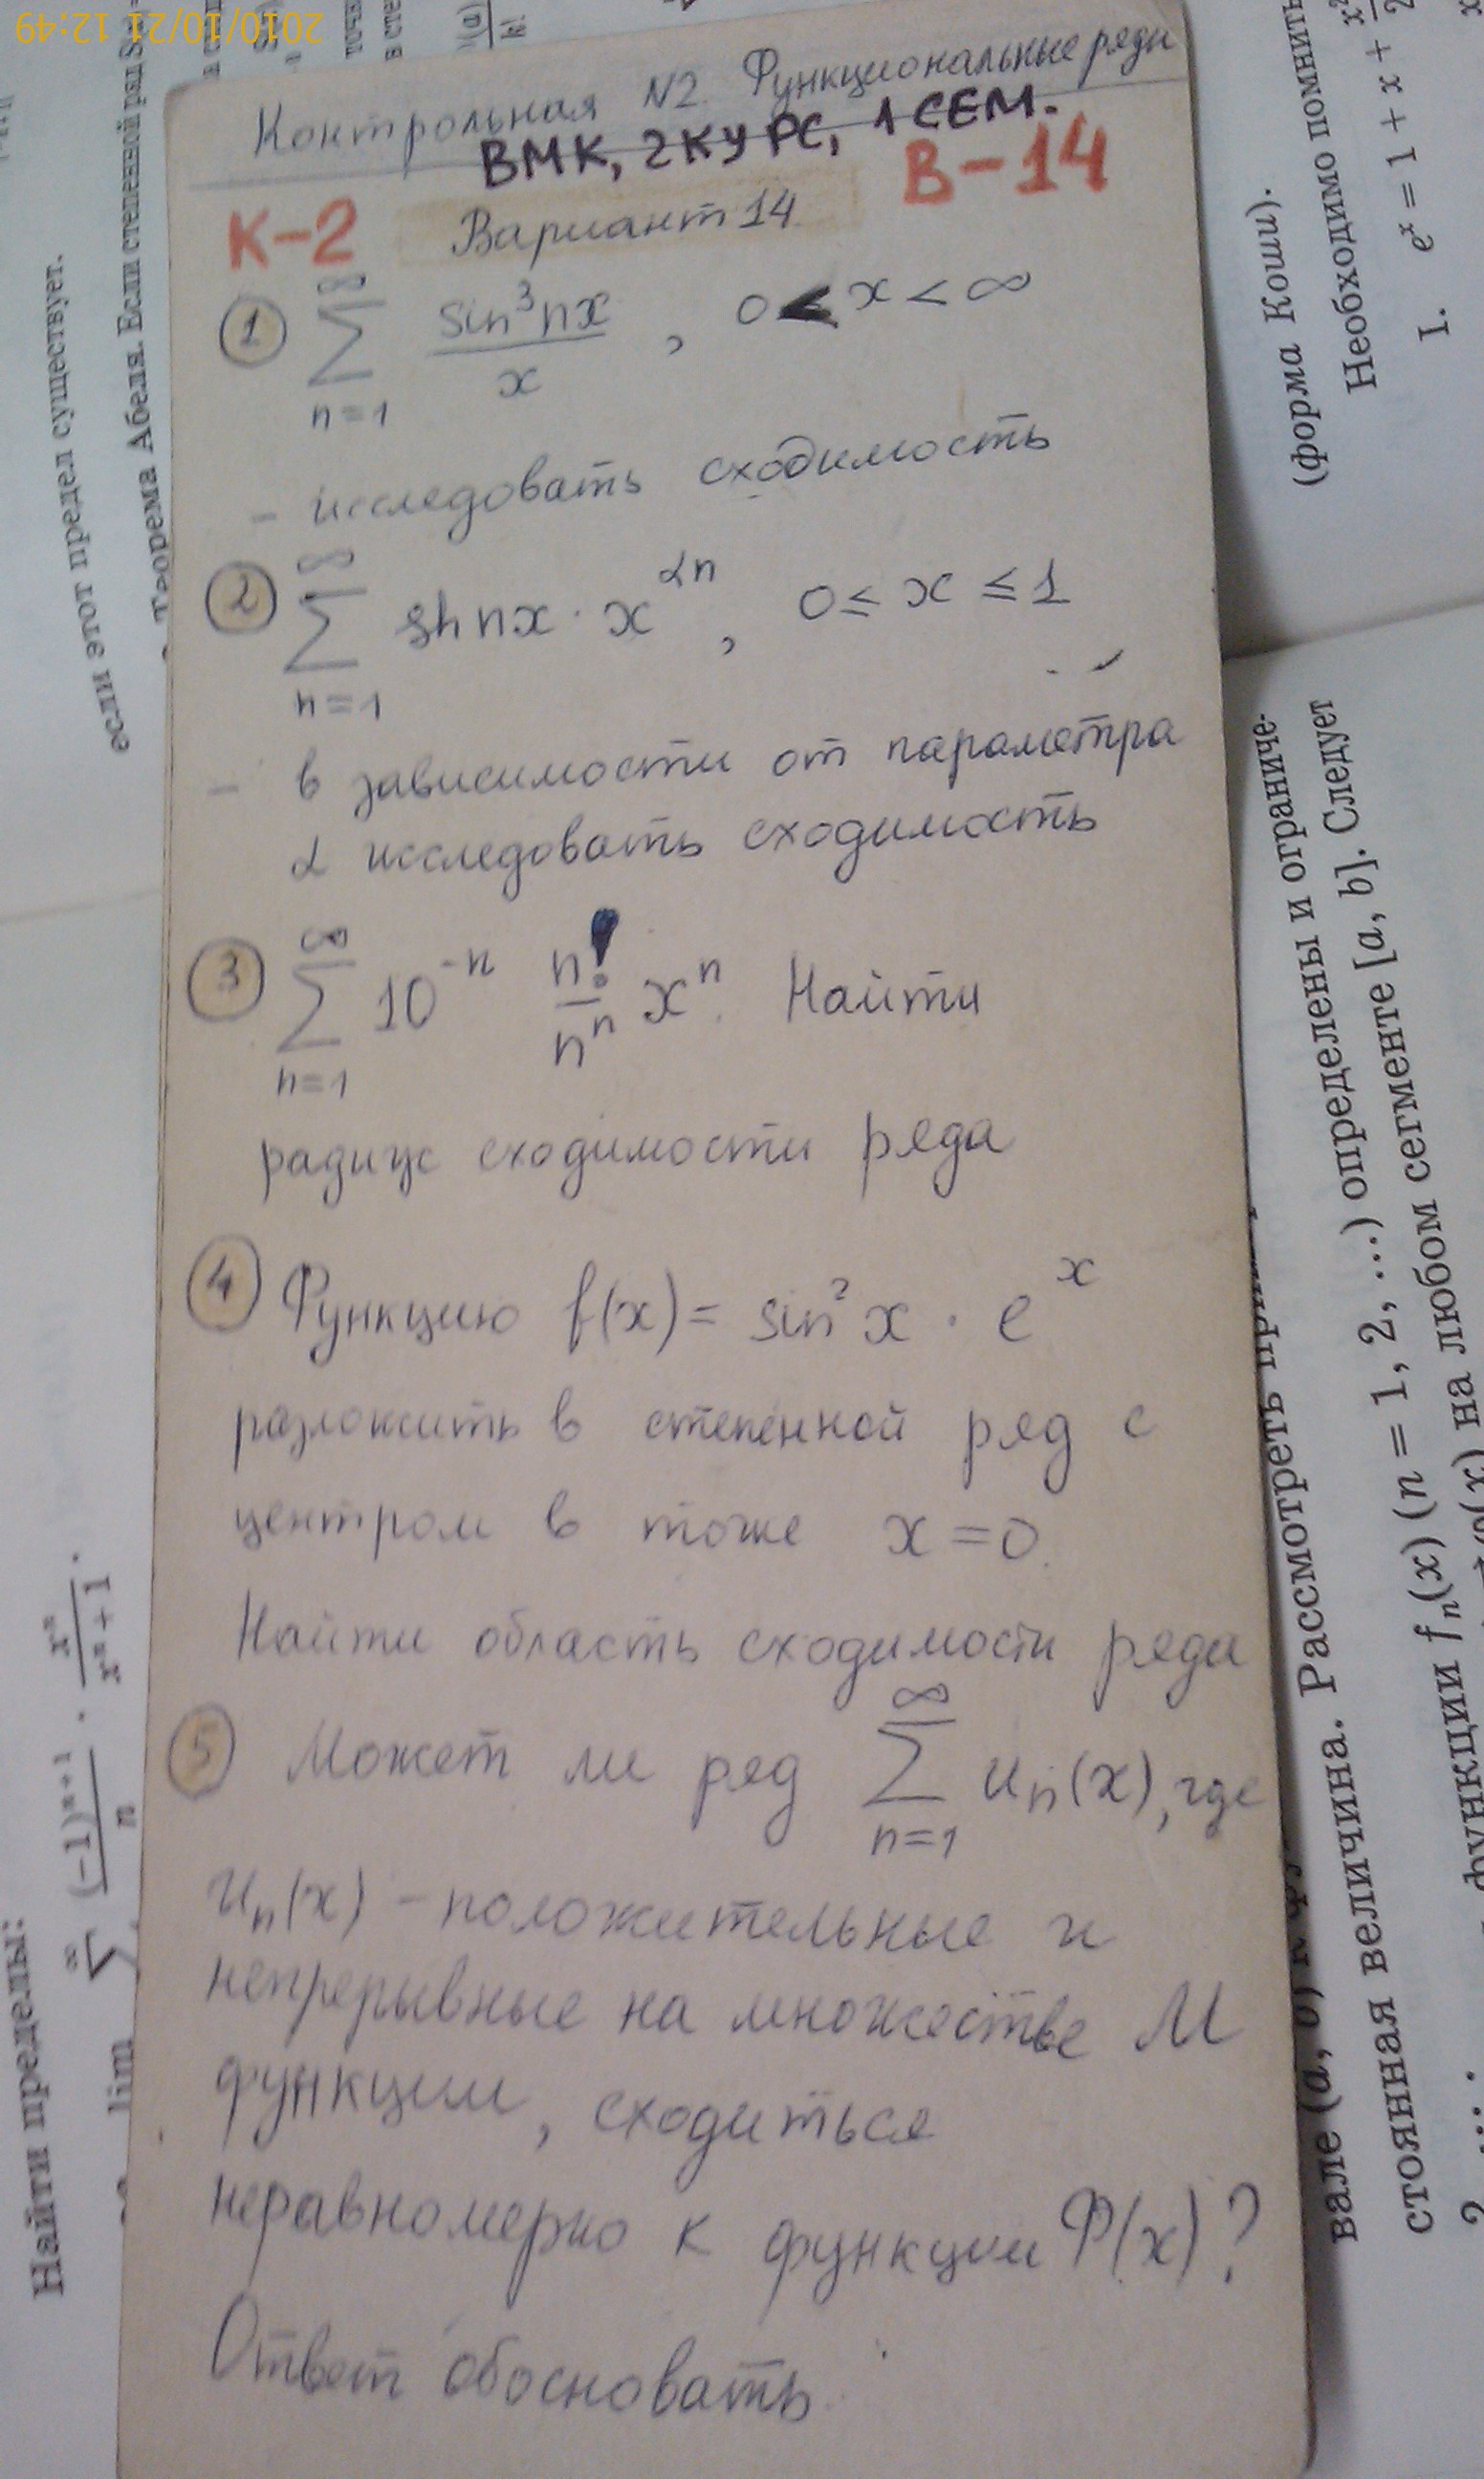 2010/10/21 12:49
Контрольная N2. Функциональные ряды
ВМК, 2 КУРС, 1 СЕМ.
К-2 Вариант 14 В-14
① ∞ ∑ n=1 sin³nx / x , 0 < x < ∞
- исследовать сходимость
② ∞ ∑ n=1 sh nx · x^αn , 0 ≤ x ≤ 1
- в зависимости от параметра
α исследовать сходимость
③ ∞ ∑ n=1 10^-n n! / n^n x^n. Найти
радиус сходимости ряда
④ Функцию f(x) = sin²x · e^x
разложить в степенной ряд с
центром в точке x = 0.
Найти область сходимости ряда
⑤ Может ли ряд ∞ ∑ n=1 uₙ(x), где
uₙ(x) - положительные и
непрерывные на множестве M
функции, сходиться
неравномерно к функции Ф(x)?
Ответ обосновать
если этот предел существует.
Теорема Абеля. Если степенной ряд
Найти пределы:
lim ∞ ∑ (-1)ⁿ⁺¹ / n · xⁿ / xⁿ + 1 .
(форма Коши).
Необходимо помнить
1. eˣ = 1 + x +
вале (a, b)
стоянная величина. Рассмотреть
функции fₙ(x) (n = 1, 2, ...) определены и ограниче-
на любом сегменте [a, b]. Следует